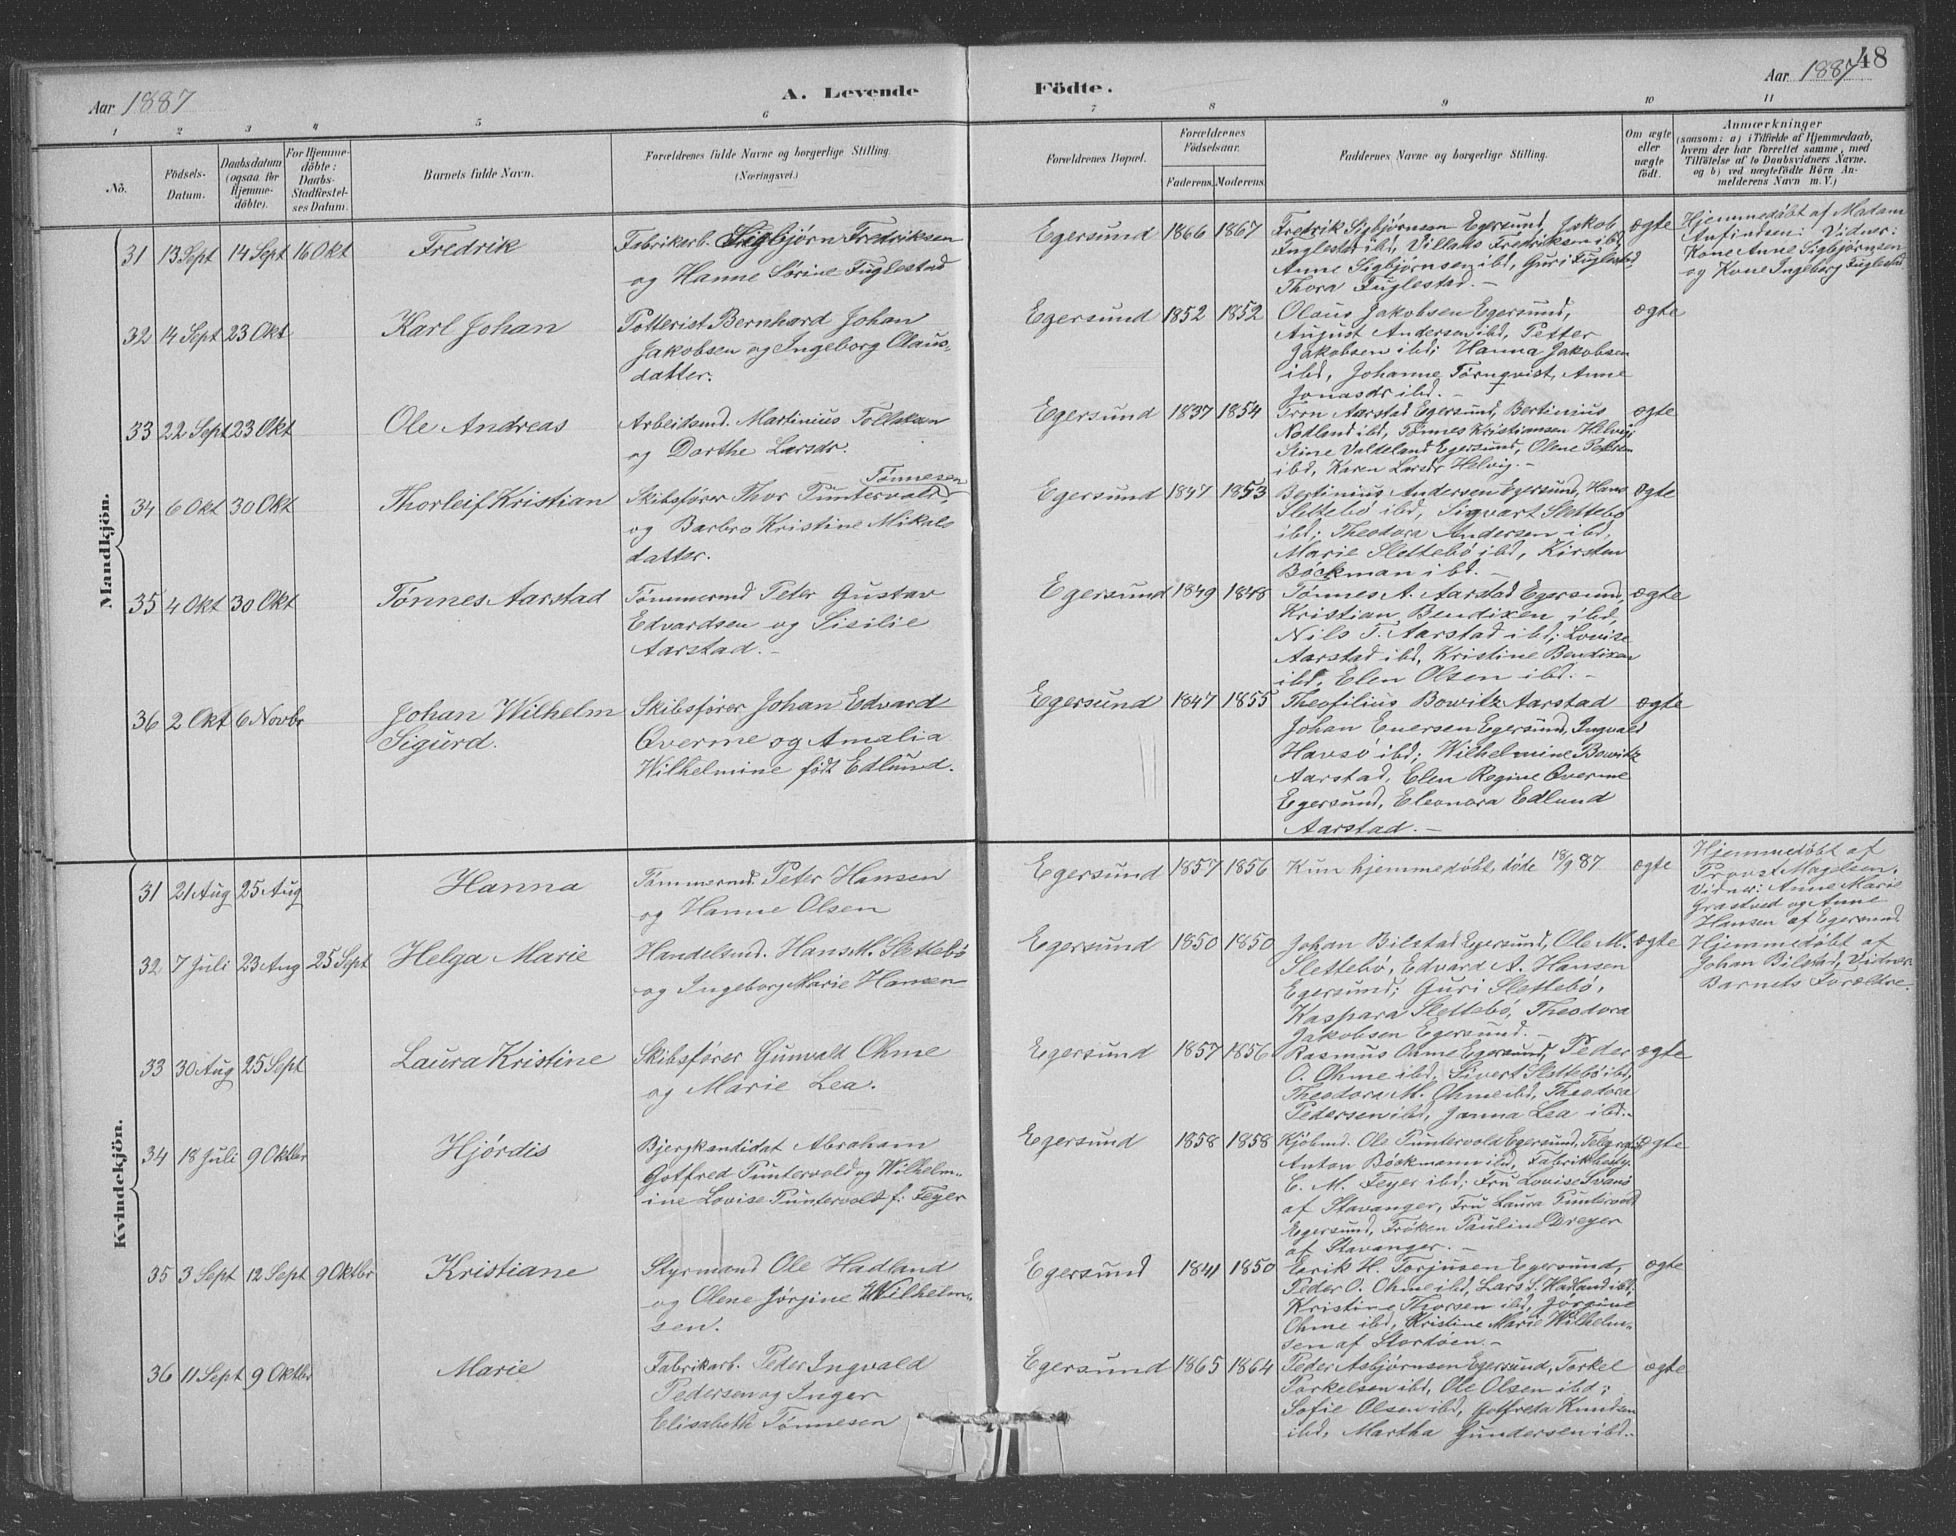 48
Aar 1887
A. Levende
Födte.
Aar 1887
1 2 3 4 5 6 7 8 9 10 11
No.
Födsels-
Datum.
Daabsdatum
(ogsaa for
Hjemme-
döbte).
For Hjemme-
döbte:
Daabs-
Stadfæstel-
ses Datum.
Barnets fulde Navn.
Forældrenes fulde Navne og borgerlige Stilling.
(Næringsvei.)
Forældrenes Bopæl.
Forældrenes
Födselsaar.
Faderens. Moderens.
Faddernes Navne og borgerlige Stilling.
Om ægte
eller
uægte
födt.
Anmærkninger
(saasom: a) i Tilfælde af Hjemmedaab,
hvem der har forrettet samme, med
Tilföielse af to Daabsvidners Navne.
og b) ved uægtefödte Börn An-
melderens Navn m. V.)
Mandkjön.
31 13 Sept 14 Sept 16 Okt Fredrik
Fabrikarb. Sigbjørn Fredriksen
og Hanne Sørine Fuglestad
Egersund 1866 1867
Fredrik Sigbjørnsen Egersund, Jakob
Fuglestad ibd, Fredriksen ibd,
Anne Sigbjørnsen ibd, Guri Fuglestad,
Thora Fuglestad.-
ægte
Hjemmedøbt af Madam
Anfindsen: Vidner:
Kone Anne Sigbjørnsen
og Kone Ingeborg Fuglestad
32 14 Sept 23 Okt Karl Johan
Potterist Bernhard Johan
Jakobsen og Ingeborg Olaus-
datter.
Egersund 1852 1852
Olaus Jakobsen Egersund,
August Andersen ibd, Petter
Jakobsen ibd; Hanna Jakobsen
ibd, Johanne Törnqvist, Anne
Jonasdr ibd.-
ægte
33 22 Sept 23 Okt Ole Andreas
Arbeidsmd. Martinius Tollaksen
og Dorthe Larsdr.
Egersund 1837 1854
Tron Aarstad Egersund, Bertinius
Nodland ibd, Tønnes Kristiansen Helvig;
Stine Valdeland Egersund, Olene Petersen
ibd, Karen Larsdr Helvig.-
ægte
34 6 Okt 30 Okt Thorleif Kristian
Tønnesen
Skibsfører Thor Puntervold
og Barbro Kristine Mikals
datter.
Egersund 1847 1853
Bertinius Andersen Egersund, Hans
Slettebø ibd, Sigvart Slettebø
ibd; Theodora Andersen ibd,
Marie Slettebø ibd, Kirsten
Bøckman ibd.-
ægte
35 4 Okt 30 Okt Tønnes Aarstad
Tømmermd Peter Gustav
Edvardsen og Sisilie
Aarstad.-
Egersund 1849 1848
Tønnes A. Aarstad Egersund,
Kristian Bendixen ibd,
Nils T. Aarstad ibd; Lovise
Aarstad ibd, Kristine Bendixen
ibd, Elen Olsen ibd.-
ægte
36 2 Okt 6 Novbr Johan Wilhelm
Sigurd.
Skibsfører Johan Edvard
Qverme og Amalia
Wilhelmine født Edlund.
Egersund 1847 1855
Theofilius Bowitz Aarstad
Johan Evensen Egersund, Ingvald
Havsø ibd; Wilhelmine Bowitz
Aarstad, Elen Regine Qverme
Egersund, Eleonora Edlund
Aarstad.-
ægte
Kvindekjön.
31 21 Aug 25 Aug Hanna
Tømmermd. Peter Hansen
og Hanne Olsen
Egersund 1857 1856
Kun hjemmedøbt, døde 18/9 87
ægte
Hjemmedøbt af
Provst Magelsen.
Vidner: Anne Marie
Grastved og Anne
Hansen af Egersund
32 7 Juli 23 Aug 25 Sept Helga Marie
Handelsmd. Hans M. Slettebø
og Ingeborg Marie Hansen
Egersund 1850 1850
Johan Bilstad Egersund, Ole M.
Slettebø, Edvard A. Hansen
Egersund; Guri Slettebø,
Kaspara Slettebø, Theodora
Jakobsen Egersund.-
ægte
Hjemmedøbt af
Johan Bilstad, Vidner
Barnets Forældre.
33 30 Aug 25 Sept Laura Kristine
Skibsfører Gunvald Ohme
og Marie Lea.
Egersund 1857 1856
Rasmus Ohme Egersund, Peder
O. Ohme ibd, Sivert Slettebø ibd,
Theodora M. Ohme ibd, Theodora
Pedersen ibd, Janna Lea ibd.-
ægte
34 18 Juli 9 Oktbr Hjørdis
Bjergkandidat Abraham
Gotfred Puntervold og Wilhelm-
ine Lovise Puntervold f: Feyer
Egersund 1858 1858
Kjöbmd. Ole Puntervold Egersund,
Anton Böckmann ibd, Fabrikbesty.
C. M. Feyer ibd; Fru Lovise Svanø
af Stavanger, Fru Laura Puntervold
Egersund, Frøken Pauline Dreyer
af Stavanger.-
ægte
35 3 Sept 12 Sept 9 Oktbr Kristiane
Styrmand Ole Hadland
og Olene Jørgine Wilhelm-
sen.
Egersund 1841 1850
Eerik H. Torjusen Egersund,
Peder O. Ohme ibd, Lars L. Hadland ibd;
Kristine Thorsen ibd, Jørgine
Ohme ibd, Kristine Marie Wilhelm-
sen af Stordøen.-
ægte
36 11 Sept 9 Oktbr Marie
Fabrikarb. Peder Ingvald
Pedersen og Inger
Elisabeth Tønnesen
Egersund 1865 1864
Peder Asbjørnsen Egersund, Torkel
Torkelsen ibd, Ole Olsen ibd;
Sofie Olsen ibd, Gotfreda Knudsen
ibd, Martha Gundersen ibd.-
ægte